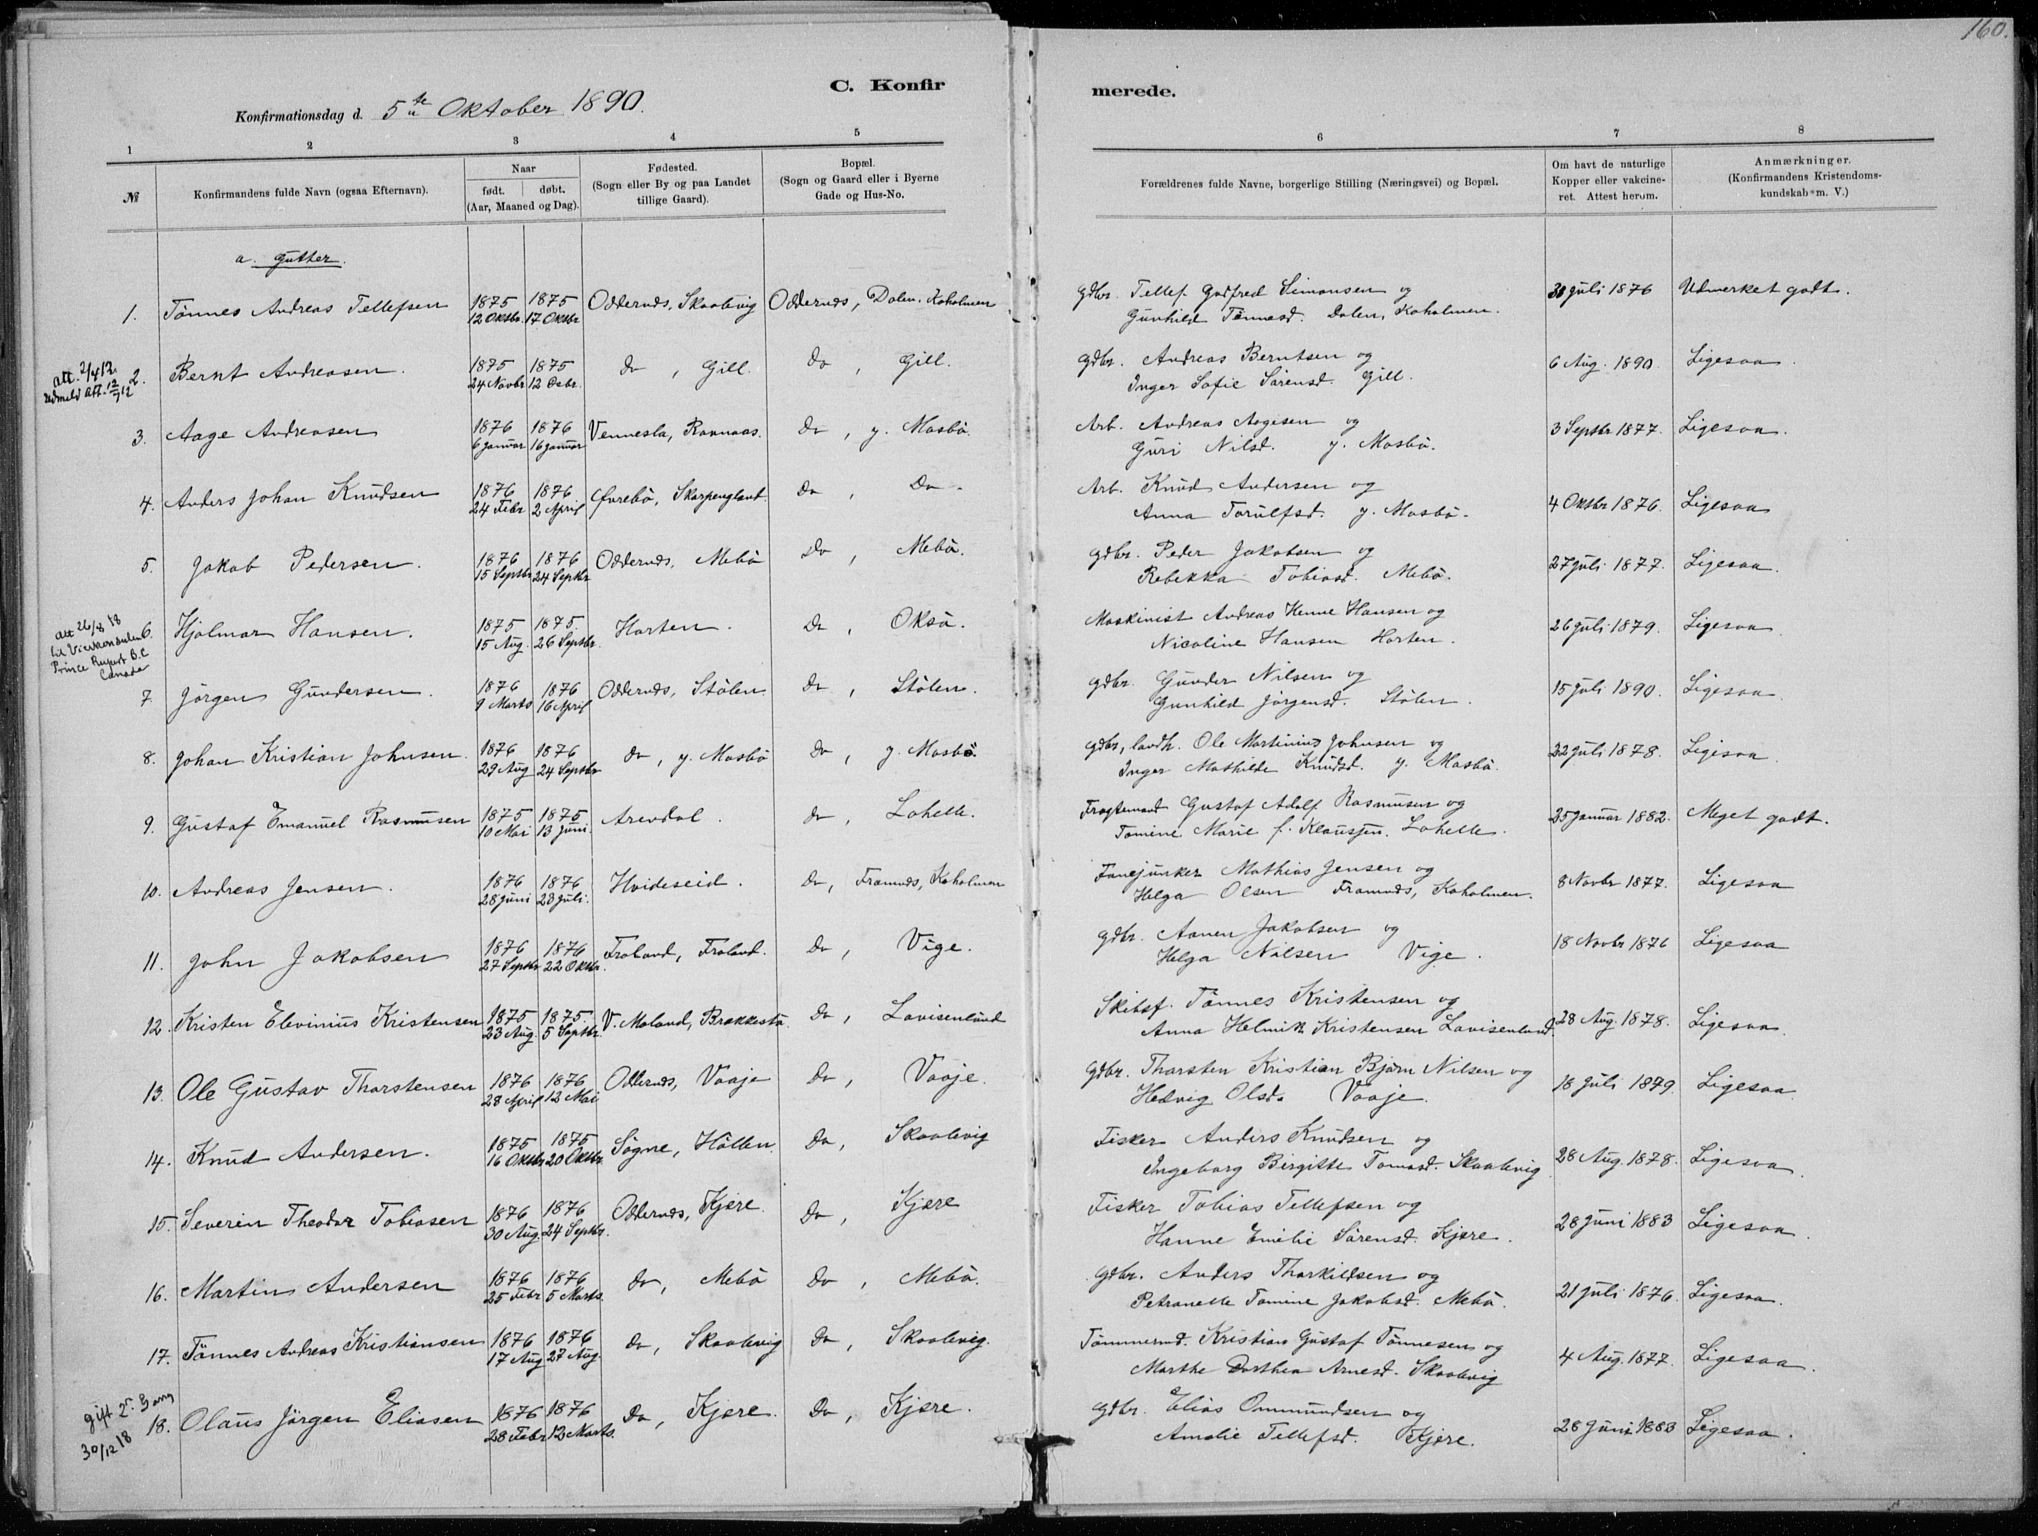 160.
C. Konfirmerede.
Konfirmationsdag d. 5te Oktober 1890.
1 2 3 4 5 6 7 8
№
Konfirmandens fulde Navn (ogsaa Efternavn).
Naar
født. døbt.
(Aar, Maaned og Dag).
Fødested.
(Sogn eller By og paa Landet
tillige Gaard).
Bopæl.
(Sogn og Gaard eller i Byerne
Gade og Hus-No.
Forældrenes fulde Navne, borgerlige Stilling (Næringsvei) og Bopæl.
Om havt de naturlige
Kopper eller vakcine-
ret. Attest herom.
Anmærkninger.
(Konfirmandens Kristendoms-
kundskab m. V.)
a. Gutter.
1. Tönnes Andreas Tellefsen 1875 12 Oktbr. 1875 17 Oktbr Oddernes, Skaalevig Oddernes, Dalen, Koholmen Gdbr. Tellef Godfred Simonsen og
Gunhild Tönnesd. Dalen, Koholmen. 30 Juli 1876 Udmerket godt.
att. 2/4 12.
Udmeld att. 12/7 12
2. Bernt Andreasen. 1875 24 Novbr 1875 12 Debr. do, Gill. Do, Gill. Gdbr. Andreas Berntsen og
Inger Sofie Sörensd. Gill. 6 Aug. 1890. Ligesaa.
3. Aage Andreasen 1876 6 Januar 1876 16 Januar Vennesla, Ravnaas. Do, y. Mosbö. Arb. Andreas Aagesen og
Guri Nilsd. y. Mosbö. 3 Septbr 1877. Ligesaa.
4. Anders Johan Knudsen 1876 24 Febr 1876 2 April Øvrebö, Skarpengland Do, Do. Arb. Knud Andersen og
Anna Torulfsd. y. Mosbö. 4 Oktbr 1876. Ligesaa
5. Jakob Pedersen. 1876 15 Septbr 1876 24 Septbr Oddernes, Mebö Do, Mebö. Gdbr. Peder Jakobsen og
Rebekka Tobiasd. Mebö. 27 Juli 1877. Ligesaa.
att 26/8 18
til Vicekonsulen
Prince Rupert B.C
Canada
6. Hjalmar Hansen. 1875 15 Aug. 1875. 26 Septbr. Horten. Do, Oksö. Maskinist Andreas Henne Hansen og
Nicoline Hansen Horten. 26 Juli 1879. Ligesaa.
7. Jörgen Gundersen. 1876 9 Marts 1876 16 April Oddernes, Stölen Do, Stölen. Gdbr. Gunder Nilsen og
Gunhild Jörgensd. Stölen. 15 Juli 1890. Ligesaa.
8. Johan Kristian Johnsen. 1876 29 Aug 1876 24 Septbr do, y. Mosbö Do, y. Mosbö. Gdbr, landh. Ole Martinius Johnsen og
Inger Mathilde Knudsd. y. Mosbö. 22 Juli 1878. Ligesaa.
9. Gustaf Emanuel Rasmusen 1875 10 Mai 1875 13 Juni. Arendal. Do, Lahelle. Fragtemand Gustaf Adolf Rasmusen og
Tomine Marie f. Klausen. Lahelle. 25 Januar 1882. Meget godt.
10. Andreas Jensen. 1876 28 Juni 1876 23 Juli. Hvideseid. Do, Framnes, Koholmen Fanejunker Mathias Jensen og
Helga Olsen Framnes, Koholmen. 8 Novbr 1877. Ligesaa
11. John Jakobsen 1876 27 Septbr 1876 22 Oktbr. Froland, Froland. Do, Vige. Gdbr. Aanen Jakobsen og
Helga Nilsen Vige. 18 Novbr 1876 Ligesaa
12. Kristen Elevinius Kristensen 1875 23 Aug. 1875. 5 Septbr. V. Moland, Brækkestö Do, Lovisenlund Skibsf. Tönnes Kristensen og
Anna Helmik Kristensen Lovisenlund. 28 Aug. 1878. Ligesaa.
13. Ole Gustav Thorstensen 1876 28 April 1876 12 Mai Oddernes, Vaaje Do, Vaaje. Gdbr. Thorsten Kristian Bjørn Nilsen og
Hedvig Olsd. Vaaje. 18 Juli 1879. Ligesaa.
14. Knud Andersen. 1875 16 Oktbr 1875 20 Oktbr. Sögne, Höllen. Do, Skaalevig Fisker Anders Knudsen og
Ingeborg Birgitte Tomasd. Skaalevig 28 Aug. 1878. Ligesaa.
15. Severin Theodor Tobiasen 1876 30 Aug. 1876 24 Septbr. Oddernes, Kjære. Do, Kjære Fisker Tobias Tellefsen og
Hanne Emelie Sörensd. Kjære. 28 Juni 1883 Ligesaa.
16. Martin Andersen 1876 25 Febr 1876 5 Marts. do, Mebö Do, Mebö. Gdbr. Anders Thorkildsen og
Petronelle Tomine Jakobsd. Mebö. 21 Juli 1876. Ligesaa.
17. Tönnes Andreas Kristiansen 1876 17 Aug 1876 27 Aug. do, Skaalevig Do, Skaalevig. Tömmermd. Kristian Gustaf Tönnesen og
Marthe Dorthea Arnesd. Skaalevig 4 Aug. 1877. Ligesaa.
gift 2. Gang
30/12 18
18. Olaus Jörgen Eliasen 1876 28 Febr 1876 12 Marts. Do, Kjære. Do, Kjære. Gdbr. Elias Ommundsen og
Amalie Tellefsd. Kjære. 28 Juni 1883 Ligesaa.